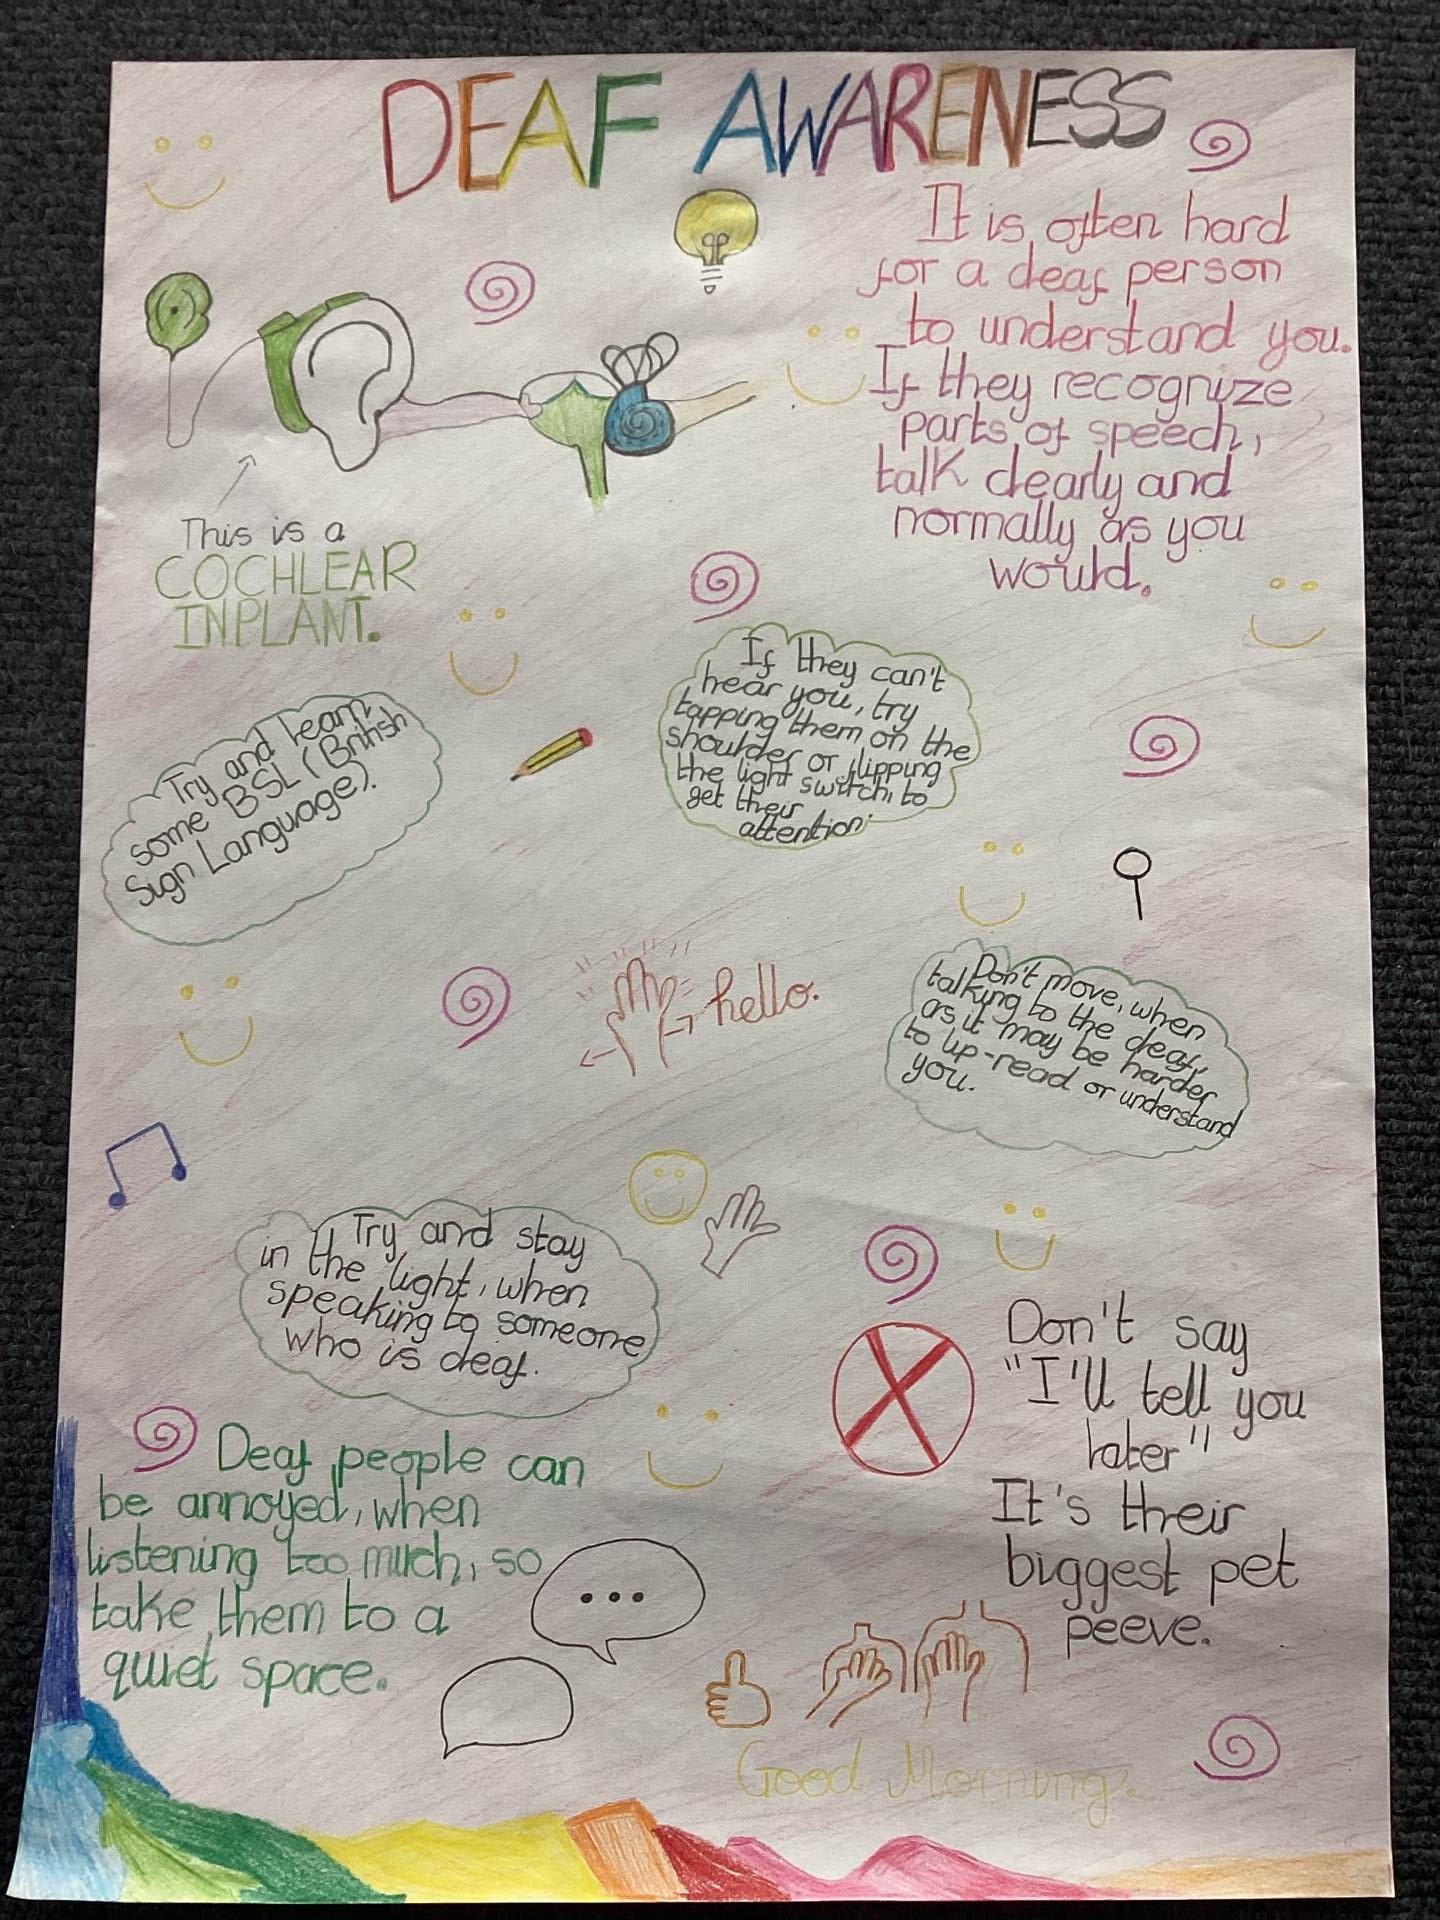 DEAF AWARENESS
It is often hard
for a deaf person
to understand you.
If they recognize
parts of speech,
talk clearly and
normally as you
would.
This is a
COCHLEAR
INPLANT.
If they can't
hear you, try
tapping them on the
shoulder or flipping
the light switch, to
get their
attention.
Try and learn
some BSL (British
Sign Language).
hello.
Don't move, when
talking to the deaf,
as it may be harder
to lip-read or understand
you.
Try and stay
in the light, when
speaking to someone
who is deaf.
Don't say
"I'll tell you
later"
It's their
biggest pet
peeve.
Deaf people can
be annoyed, when
listening too much, so
take them to a
quiet space.
Good Morning.